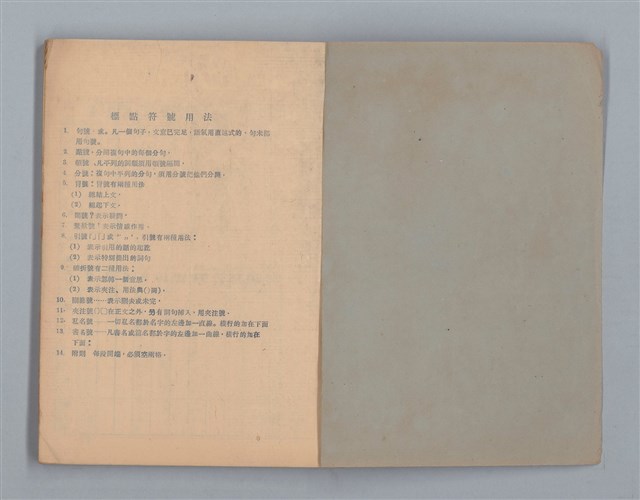 標點符號用法
1. 句號：或。凡一個句子，文意已完足，語氣用直述式的，句末都
用句號。
2. 點號，分開複句中的每個分句。
3. 頓號、凡平列的詞都應用頓號隔開。
4. 分號；複句中平列的分句，須用分號把他們分開。
5. 冒號：冒號有兩種用法
(1) 總結上文。
(2) 總起下文。
6. 問號？表示疑問。
7. 驚歎號！表示情緒作用。
8. 引號「」『』或" "' '，引號有兩種用法：
(1) 表示引用的話的起訖
(2) 表示特別提出的詞句
9. 破折號有二種用法：
(1) 表示忽轉一個意思。
(2) 表示夾注。用法與( )同。
10. 刪節號……表示刪去或未完。
11. 夾注號( )在正文之外，另有詞句插入，用夾注號。
12. 私名號——一切私名都於名字的左邊加一直線。橫行的加在下面
13. 書名號﹏凡書名或篇名都於字的左邊加一曲線，橫行的加在
下面：
14. 附則 每段開端，必須空兩格。